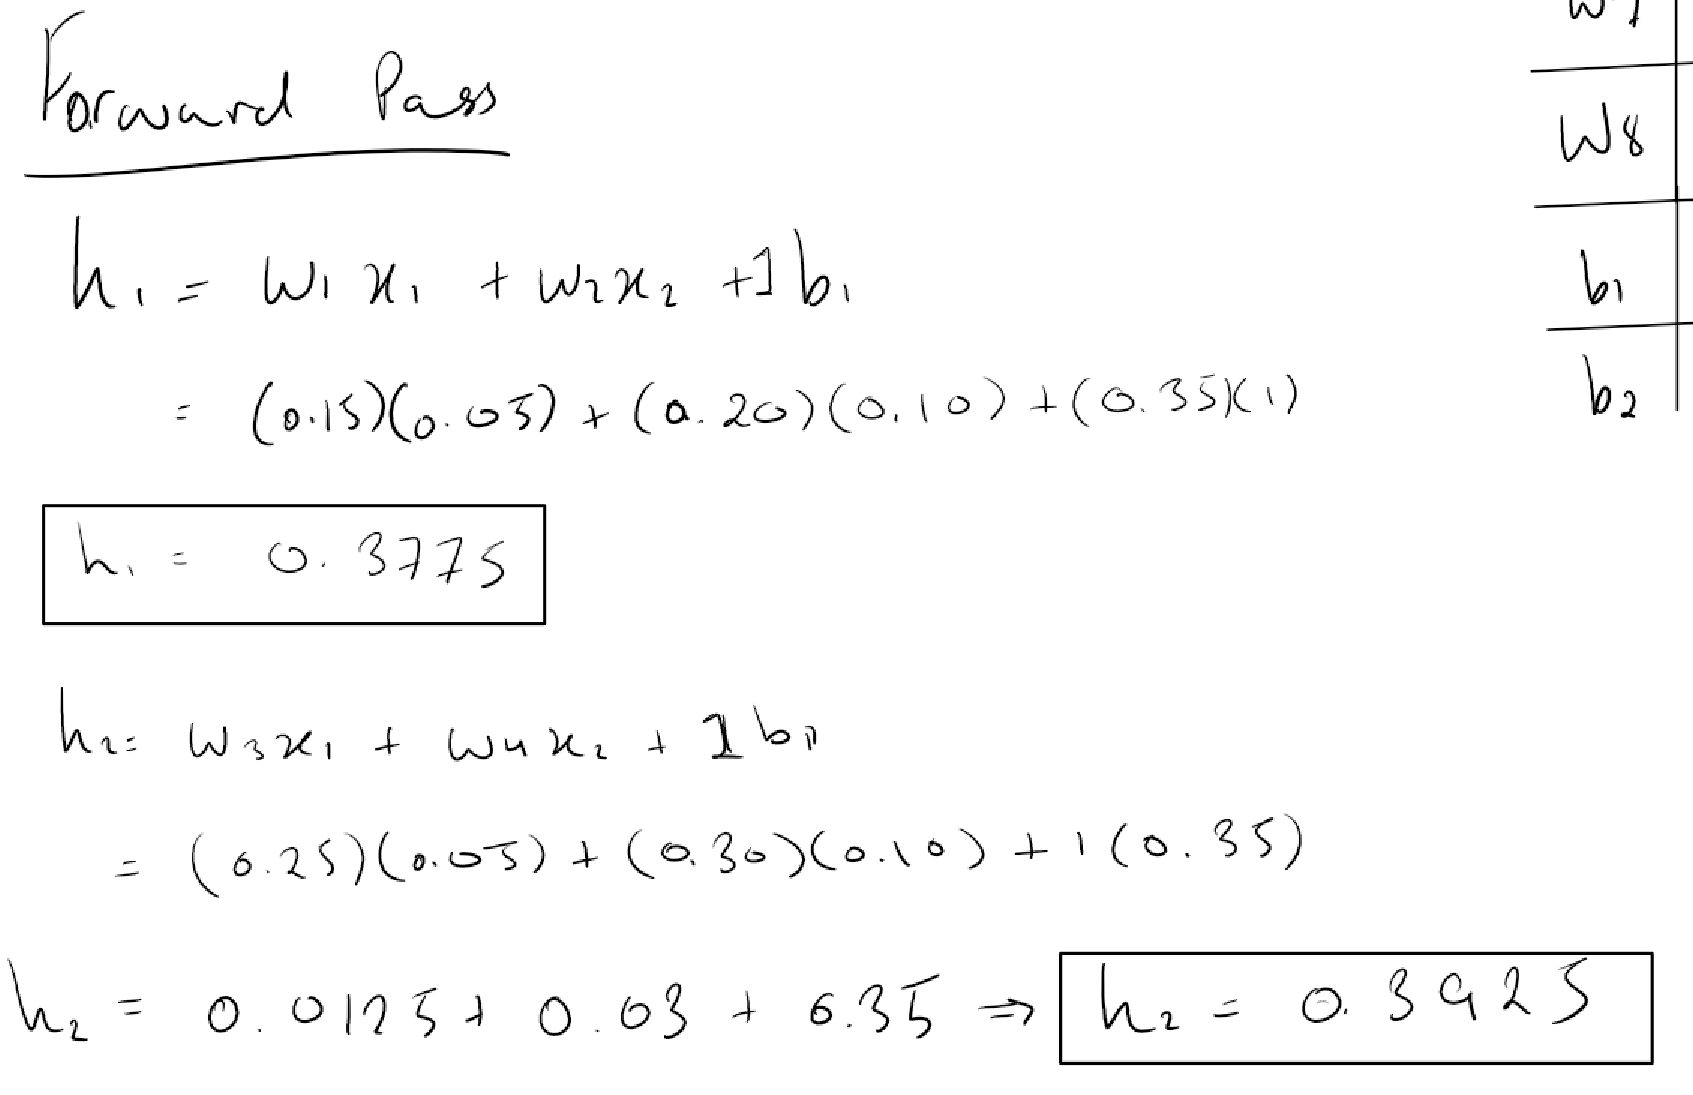 Forward Pass
h₁ = w₁x₁ + w₂x₂ + 1b₁
= (0.15)(0.05) + (0.20)(0.10) + (0.35)(1)
h₁ = 0.3775
h₂ = w₃x₁ + w₄x₂ + 1b₁
= (0.25)(0.05) + (0.30)(0.10) + 1(0.35)
h₂ = 0.0125 + 0.03 + 0.35 ⇒ h₂ = 0.3925
w8
b₁
b₂